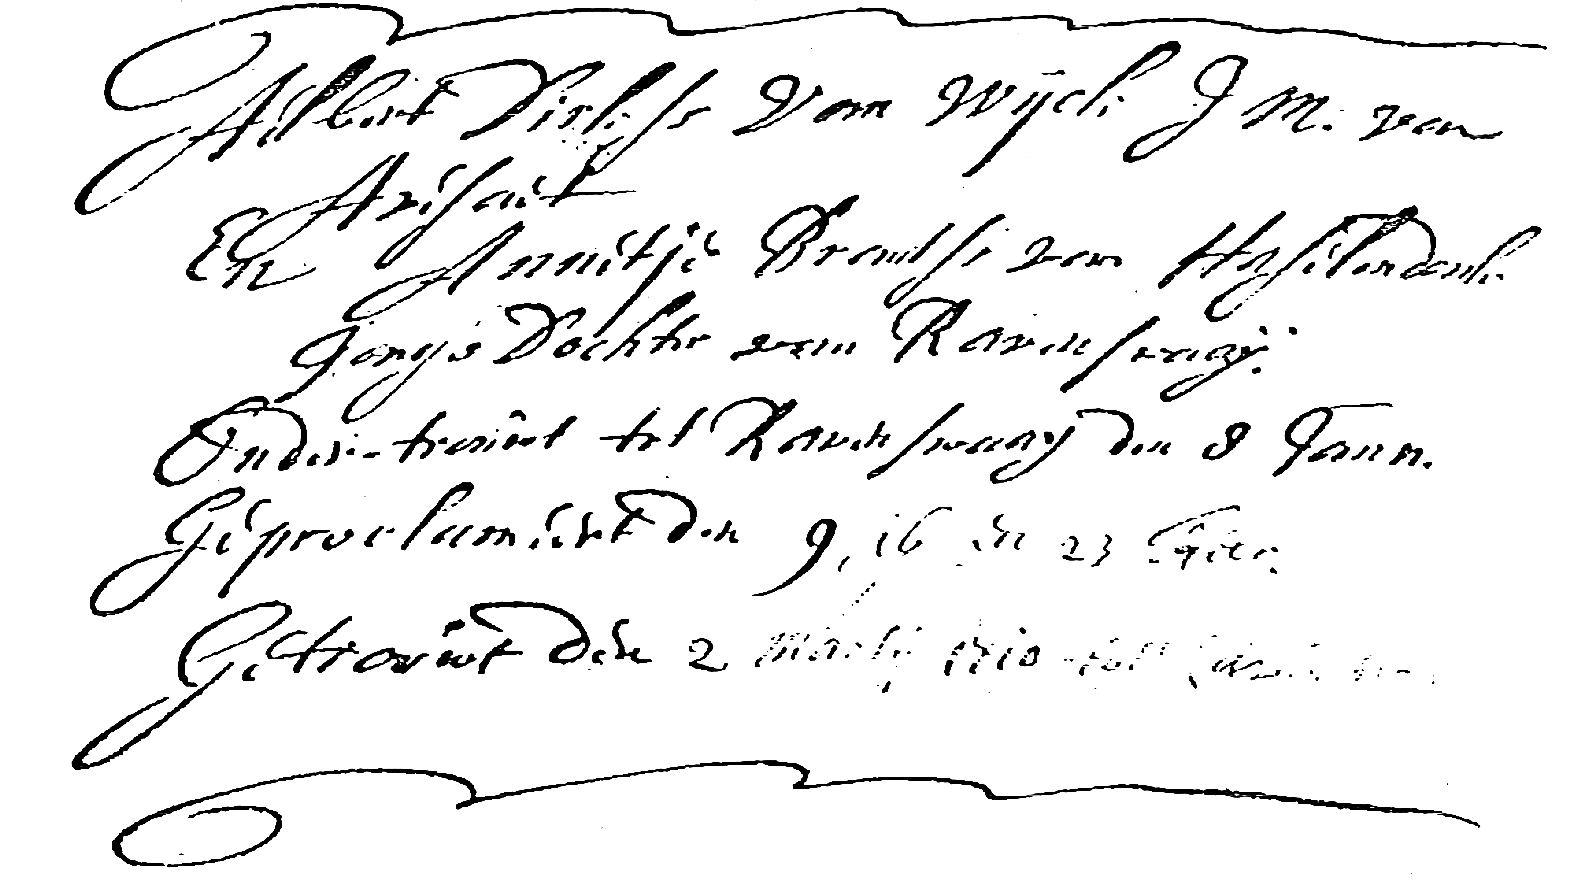 Aelbert Dirksse Van Wijck J M. van
Avesaet
En Annetje Brandse van Heselendonk
Jonge Dochter van Ravenswaaij.
Onder-trouwt tot Ravenswaaij den 8 Jann.
Geproclameert den 9, 16 en 23 
Getrouwt den 2 Martij 1710 tot